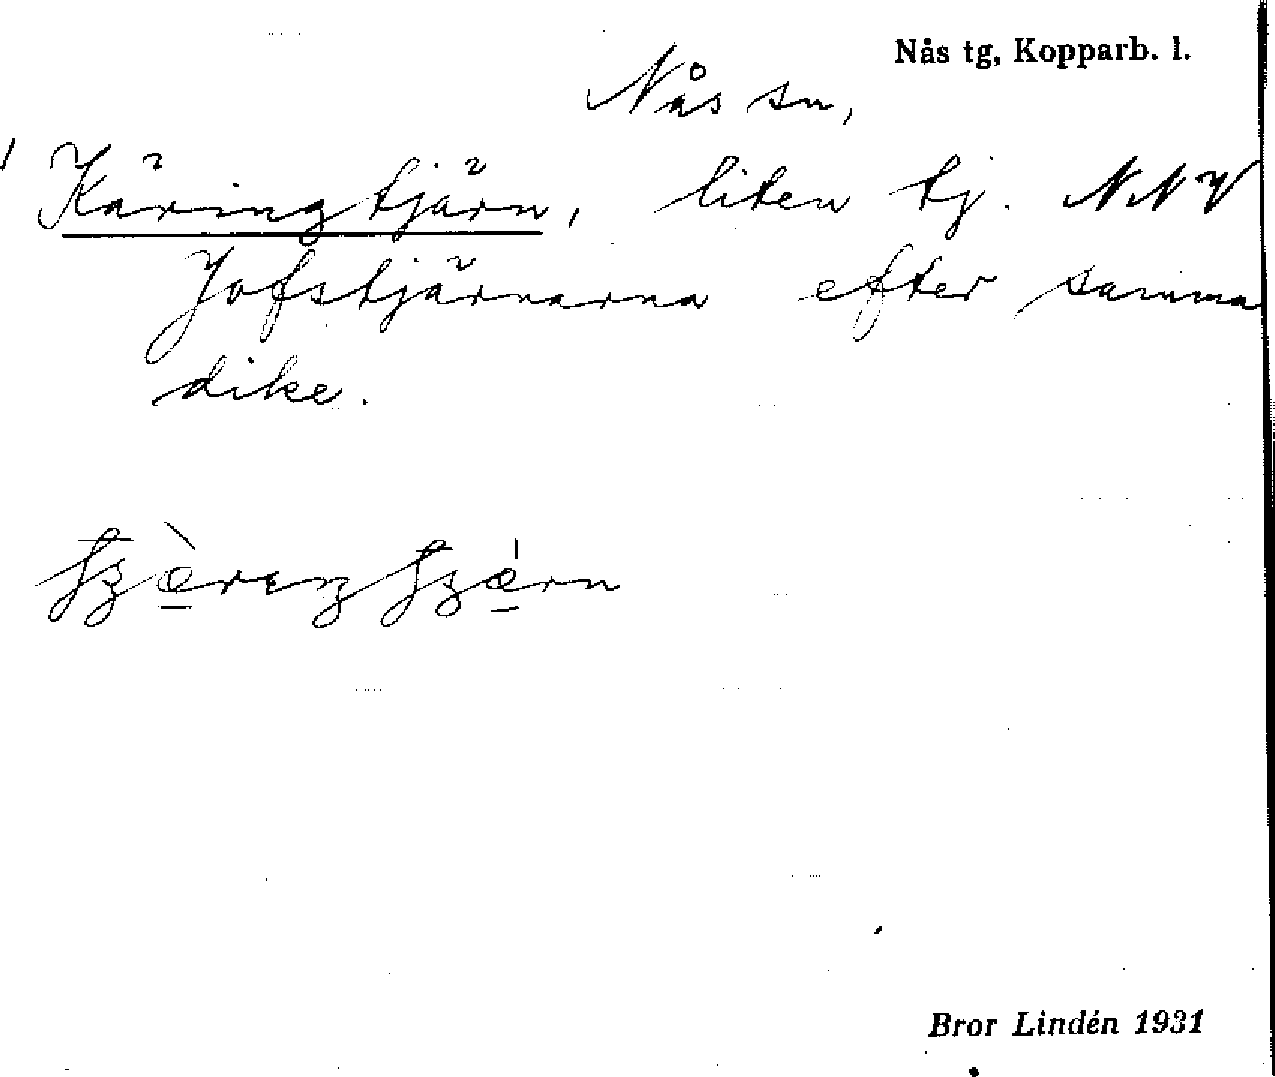 Nås tg, Kopparb. l.
Nås sn,
Käringtjärn, liten tj. NNV
Jofstjärnarna efter samma
dike.
Bror Lindén 1931